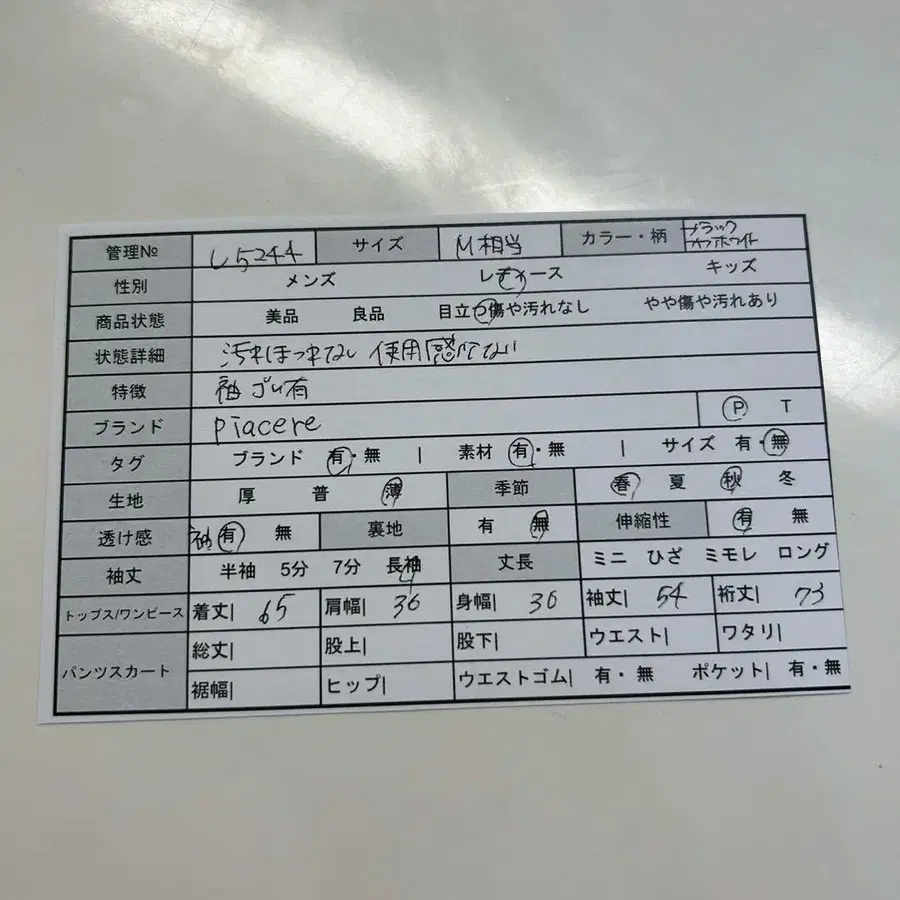 管理№ L5244 サイズ M相当 カラー・柄 ブラック オフホワイト
性別 メンズ レディース キッズ
商品状態 美品 良品 目立つ傷や汚れなし やや傷や汚れあり
状態詳細 汚れほつれなし 使用感少ない
特徴 袖ゴム有
ブランド piacere P T
タグ ブランド 有・無 | 素材 有・無 | サイズ 有・無
生地 厚 普 薄 季節 春 夏 秋 冬
透け感 袖 有 無 裏地 有 無 伸縮性 有 無
袖丈 半袖 5分 7分 長袖 丈長 ミニ ひざ ミモレ ロング
トップス/ワンピース 着丈| 65 肩幅| 36 身幅| 36 袖丈| 54 裄丈| 73
パンツスカート 総丈| 股上| 股下| ウエスト| ワタリ|
裾幅| ヒップ| ウエストゴム| 有・無 ポケット| 有・無